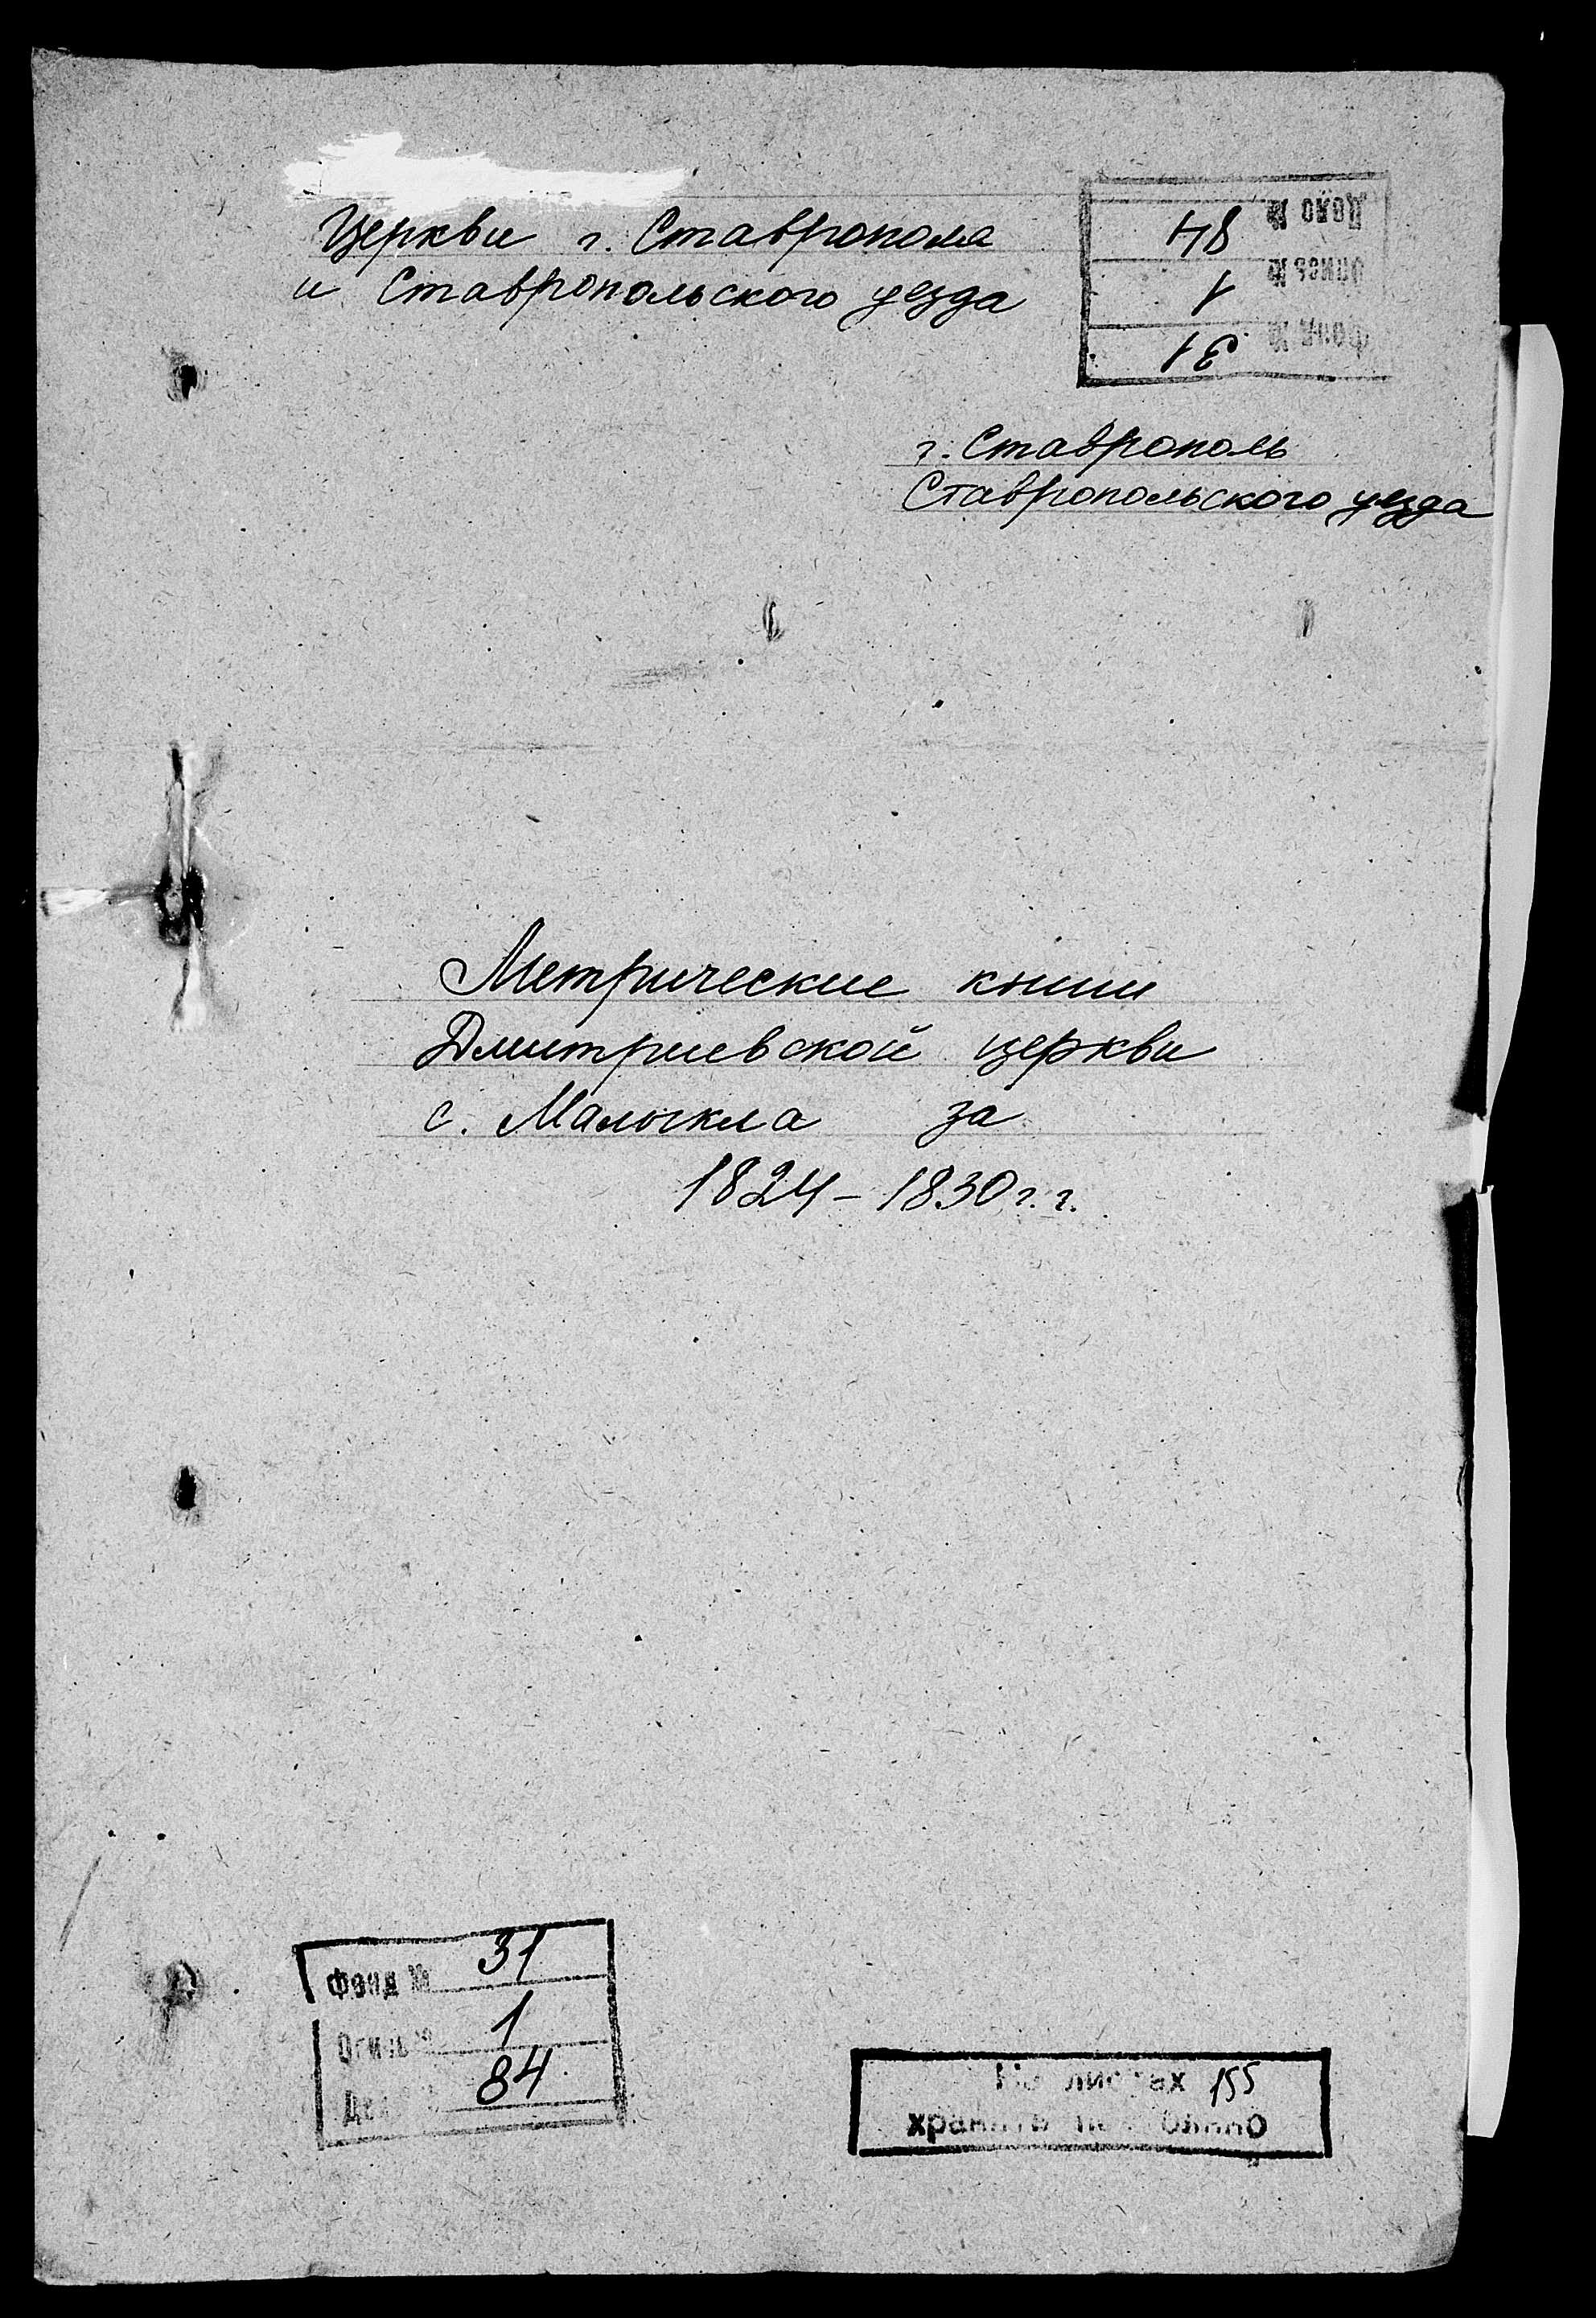 Церкви г. Ставрополя
и Ставропольского уезда
Дело № 84
Опись № 1
Фонд № 31
г. Ставрополь
Ставропольского уезда
Метрические книги
Дмитриевской церкви
с. Малыкла за
1824 – 1830 г.г.
Фонд № 31
Опись № 1
Дело 84
На листах 155
хранить постоянно